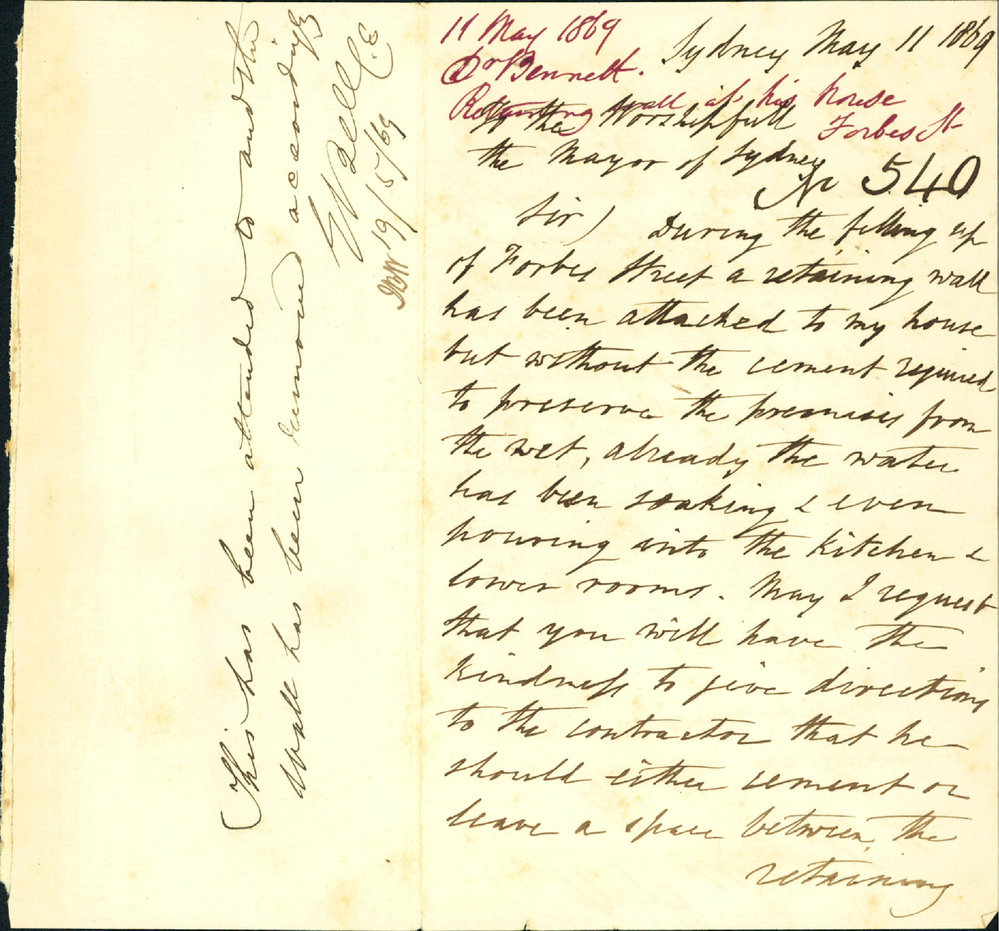 This has been attended to and the
Wall has been removed accordingly
E Bell C.E
19/5/69
11 May 1869
Dr Bennett.
Retaining Wall at his house
Forbes St
Sydney May 11 1869
To the Worshipfull
the Mayor of Sydney
No 540
Sir) During the filling up
of Forbes Street a retaining wall
has been attached to my house
but without the cement required
to preserve the premises from
the wet, already the water
has been soaking & even
pouring into the kitchen &
lower rooms. May I request
that you will have the
kindness to give directions
to the contractor that he
should either cement or
leave a space between the
retaining